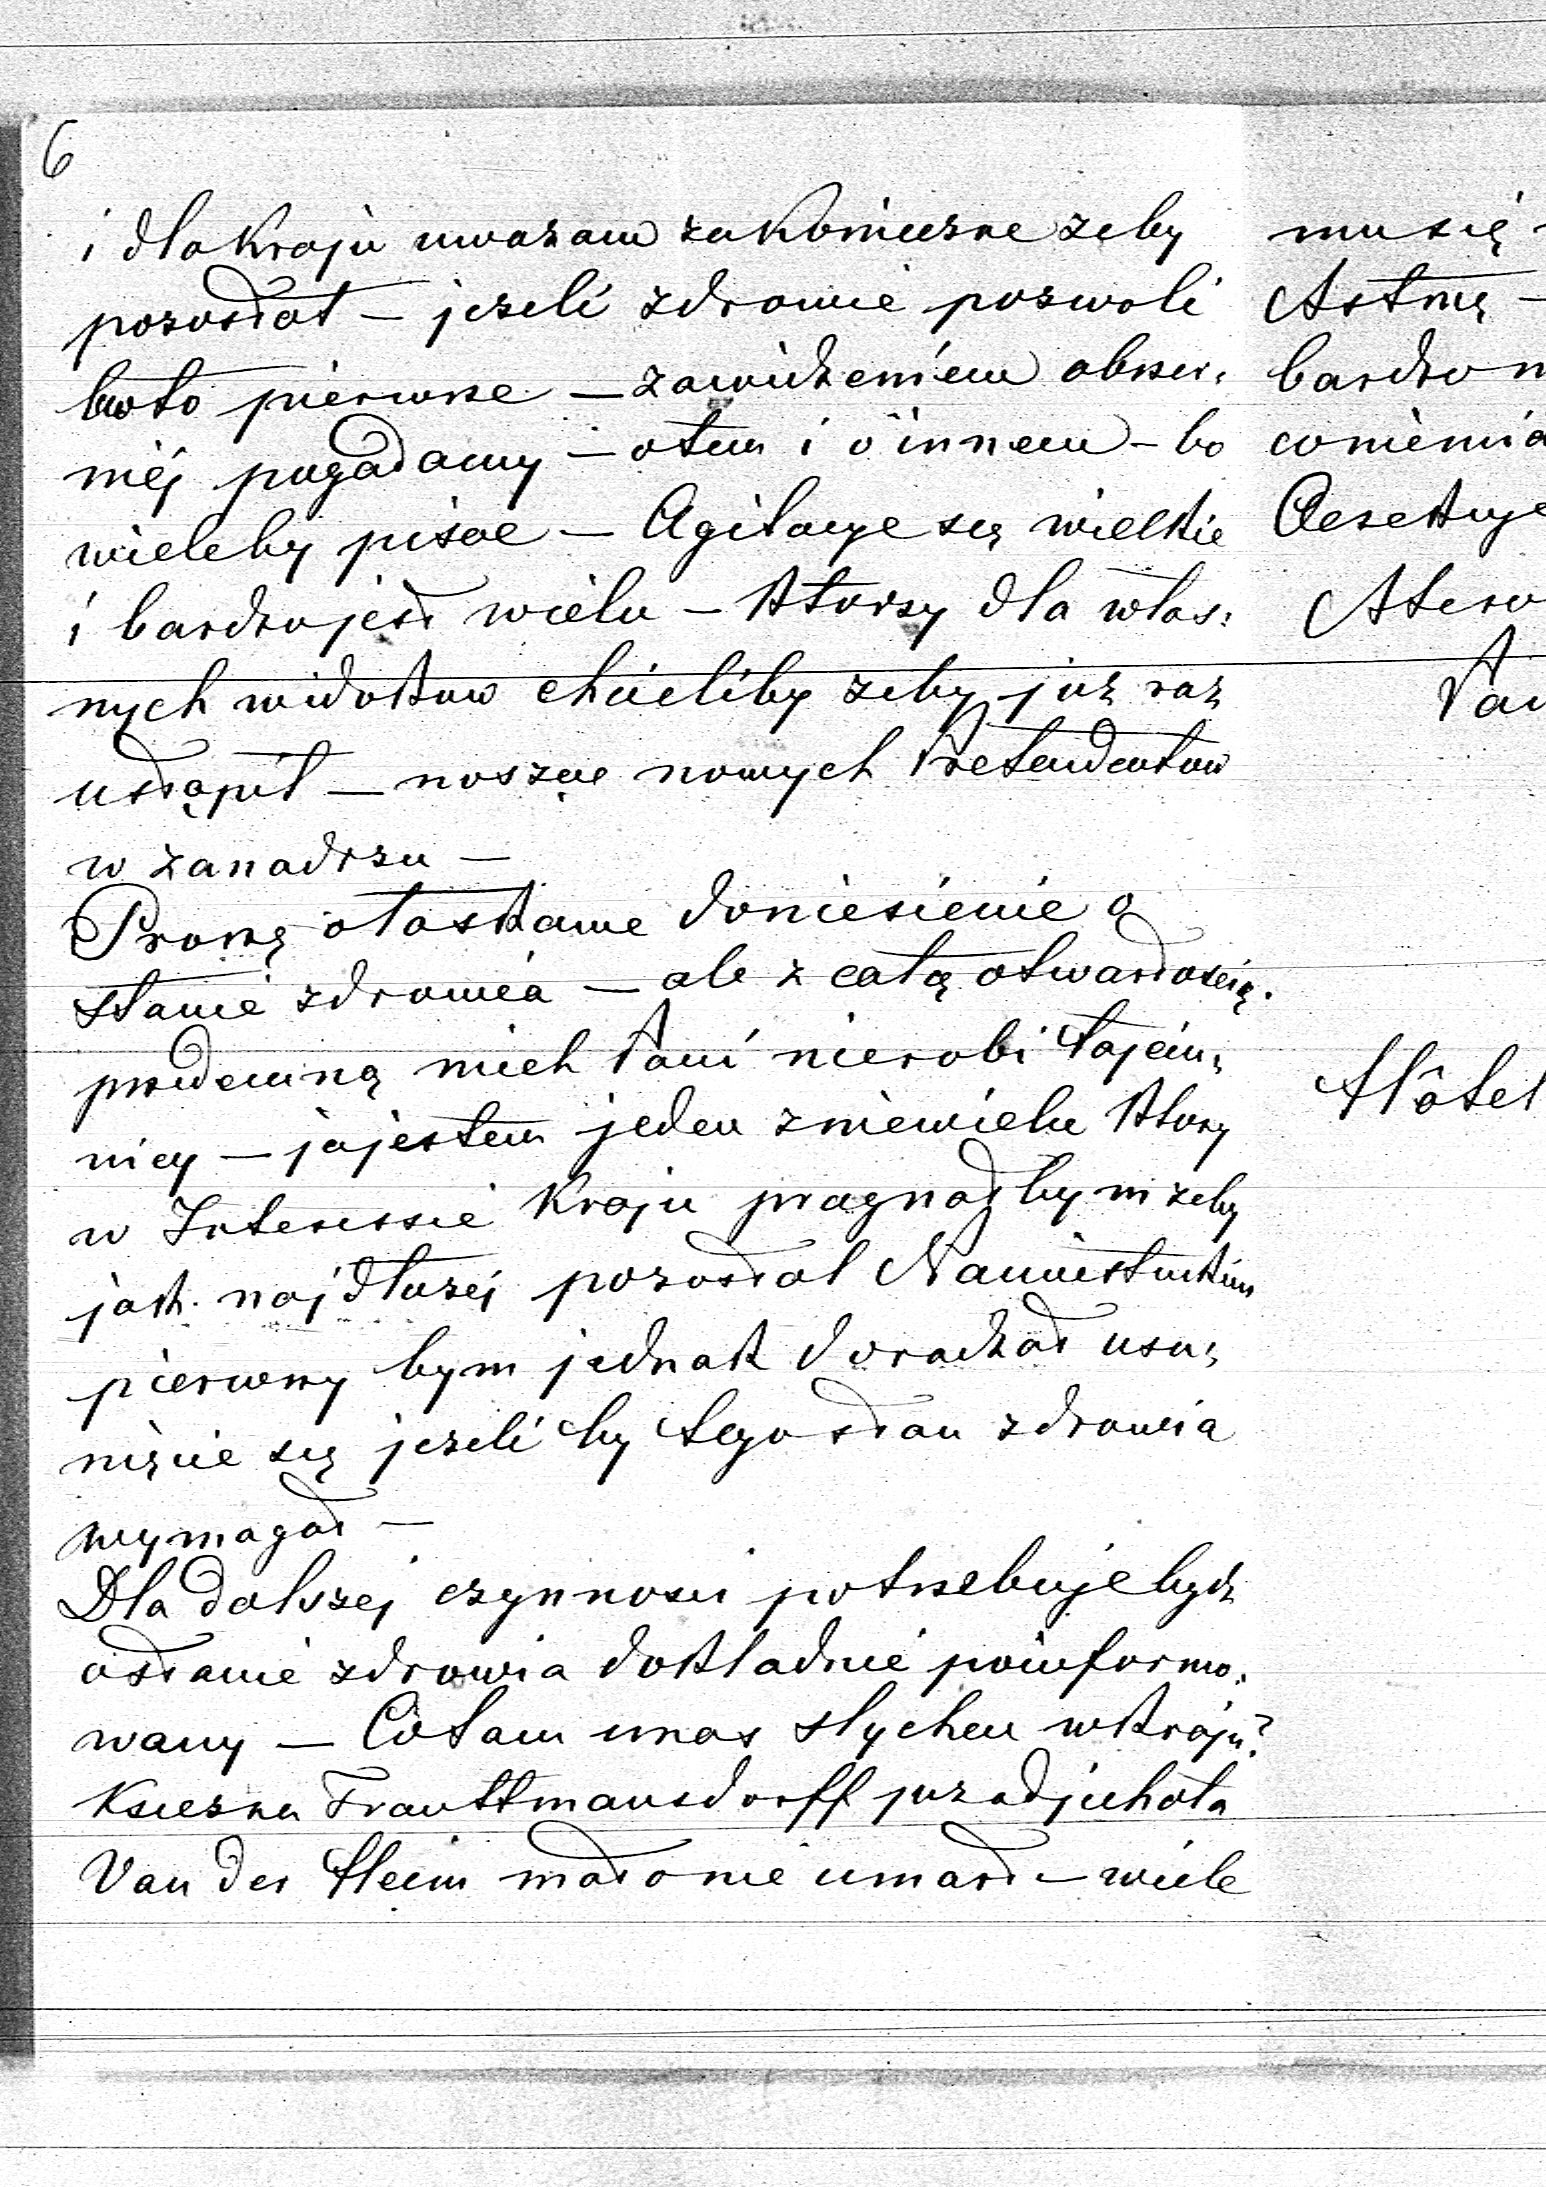 6
i dla Kraju uwazam za Konieczne zeby
pozostał — jezeli zdrowie pozwoli
bo to pierwsze — zawidzeniem obszer:
niéj pogadamy — otem i o innem — bo
wieleby pisac — Agitacye są wielkie
i bardzo jest wielu — ktorzy dla włas:
nych widokow chcieliby zeby już raz
ustąpił — nosząc nowych Pretendentow
w zanadrzu —
Proszę o łaskawe doniesienie o
stanie zdrowia — ale z całą otwartością.
przedemną niech Pani nierobi tajem:
nicy — ja jestem jeden z niewielu ktory
w Interessie Kraju pragnąłbym zeby
jak. najdłuzej pozostal Namiestnikiem
pierwszy bym jednak doradzał usu:
nięcie się jezeli by tego stan zdrowia
wymagał —
Dla dalszej czynnosci potrzebuje bydz
o stanie zdrowia dokładnie poinformo:
wany — Co tam u nas slychen w kraju?
Ksiezna Trauttmansdorff juz odjechała
Van der Heim mało nie umarł — wiele
mu się
Astmę —
bardzo
Hôtel